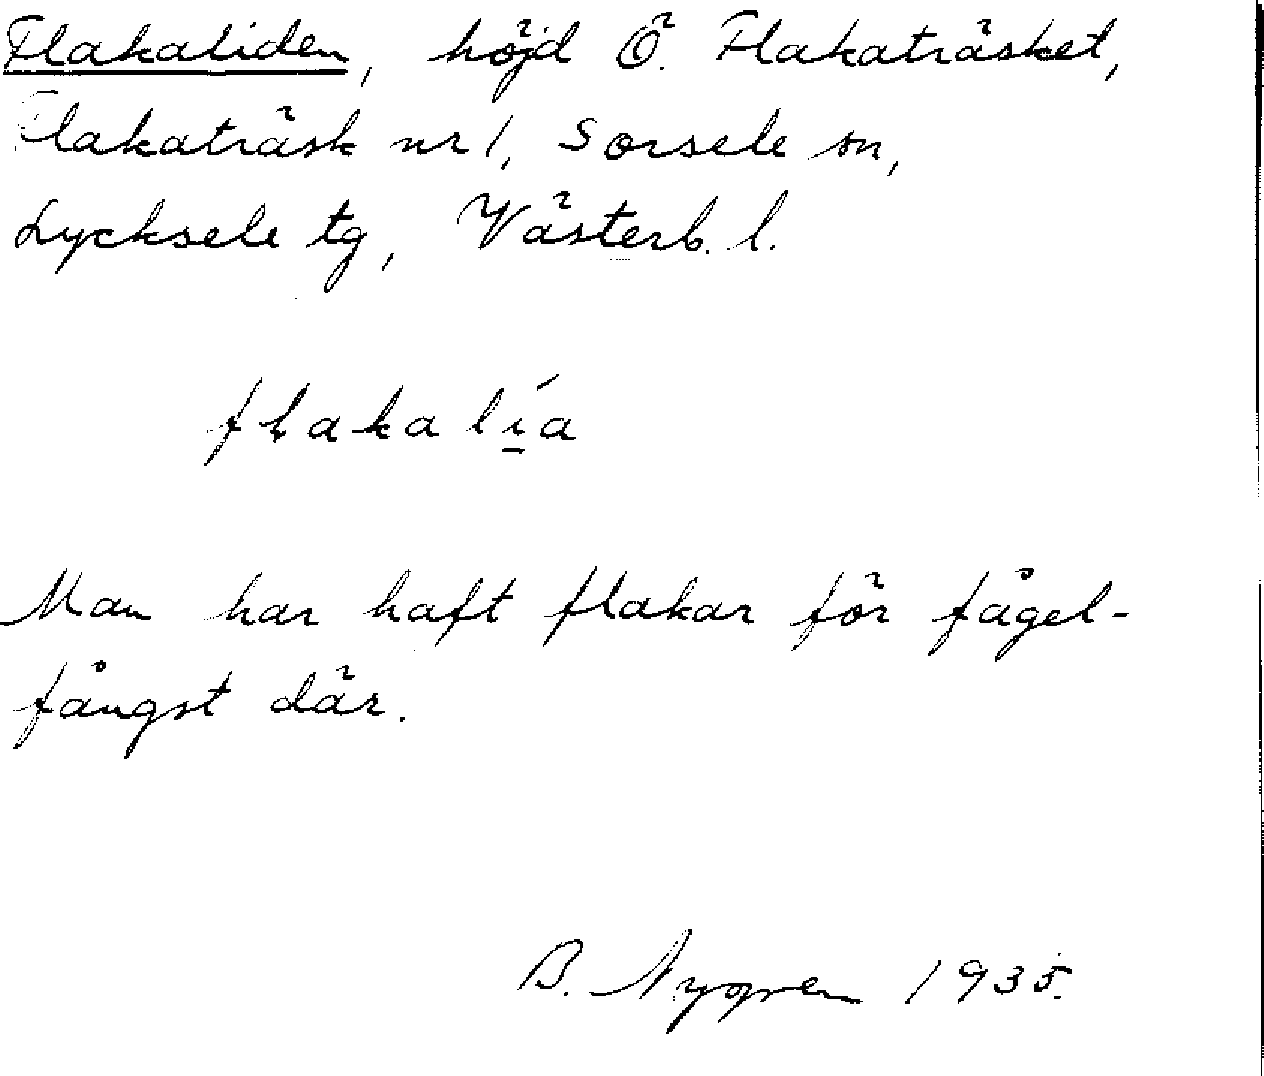 Flakaliden, höjd Ö. Flakaträsket,
Flakaträsk nr 1, Sorsele sn,
Lycksele tg, Västerb. l.
flakalí̱a
Man har haft flakar för fågel-
fångst där.
B. Nygren 1935.